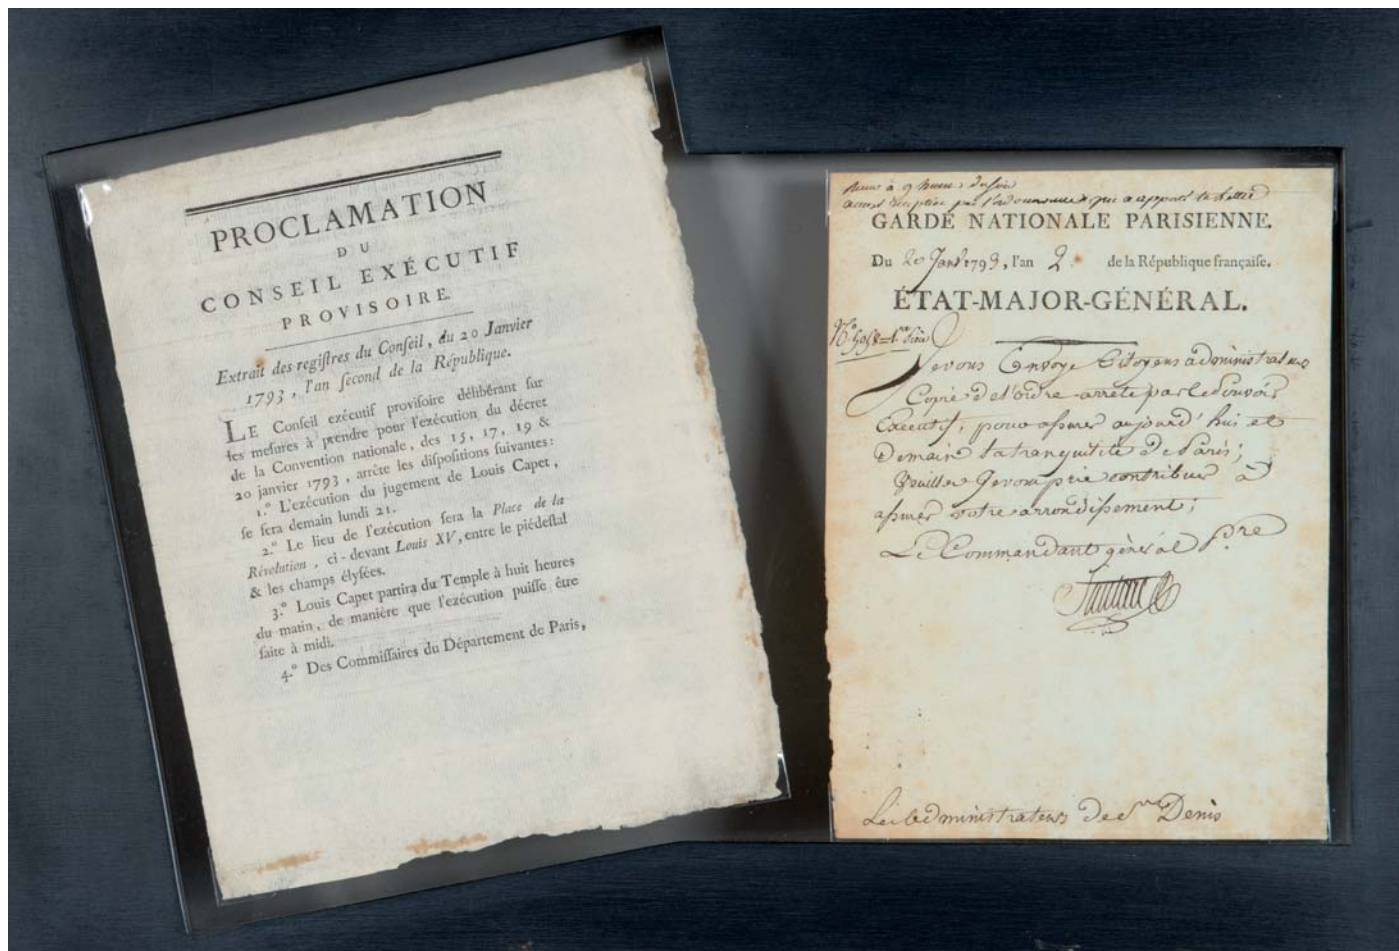 PROCLAMATION
DU
CONSEIL EXÉCUTIF
PROVISOIRE.
Extrait des regiſtres du Conſeil, du 20 Janvier
1793, l'an ſecond de la République.
LE Conſeil exécutif proviſoire délibérant ſur
les meſures à prendre pour l'exécution du décret
de la Convention nationale, des 15, 17, 19 &
20 janvier 1793, arrête les diſpoſitions ſuivantes:
1.° L'exécution du jugement de Louis Capet,
ſe fera demain lundi 21.
2.° Le lieu de l'exécution ſera la Place de la
Révolution, ci-devant Louis XV, entre le piédeſtal
& les champs élyſées.
3.° Louis Capet partira du Temple à huit heures
du matin, de manière que l'exécution puiſſe être
faite à midi.
4.° Des Commiſſaires du Département de Paris,
à 9 heures
par l'ordonnance qui a apporté
GARDE NATIONALE PARISIENNE.
Du 20 Janv. 1793, l'an 2. de la République françaiſe.
ÉTAT-MAJOR-GÉNÉRAL.
Je vous Envoye Citoyens administrateurs
Copie de l'ordre arrêté par le Pouvoir
Executif, pour assurer aujourd'hui et
Demain la tranquilité de Paris;
Veuillez Je vous prie contribuer à
assurer votre arrondissement;
Le Commandant général
Santerre
Les administrateurs de St Denis